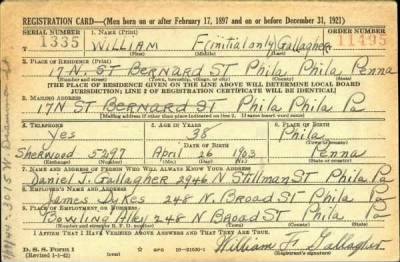 REGISTRATION CARD—(Men born on or after February 17, 1897 and on or before December 31, 1921)
SERIAL NUMBER 1. NAME (Print) ORDER NUMBER
1335 WILLIAM F(initial only) Gallagher 11495
(First) (Middle) (Last)
2. PLACE OF RESIDENCE (Print)
17 N. ST BERNARD ST Phila Phila Penna
(Number and street) (Town, township, village, or city) (County) (State)
[THE PLACE OF RESIDENCE GIVEN ON THE LINE ABOVE WILL DETERMINE LOCAL BOARD
JURISDICTION; LINE 2 OF REGISTRATION CERTIFICATE WILL BE IDENTICAL]
3. MAILING ADDRESS
17 N ST BERNARD ST Phila Phila Pa
[Mailing address if other than place indicated on line 2. If same insert word same]
4. TELEPHONE 5. AGE IN YEARS 6. PLACE OF BIRTH
Yes 38 Phila
DATE OF BIRTH (Town or county)
Sherwood 5297 April 26 1903 Penna
(Exchange) (Number) (Mo.) (Day) (Yr.) (State or country)
7. NAME AND ADDRESS OF PERSON WHO WILL ALWAYS KNOW YOUR ADDRESS
Daniel J. Gallagher 2946 N Stillman ST Phila Pa
8. EMPLOYER'S NAME AND ADDRESS
James Dykes 248 N. Broad ST Phila Pa
9. PLACE OF EMPLOYMENT OR BUSINESS
Bowling Alley 248 N Broad ST Phila Pa
(Number and street or R. F. D. number) (Town) (County) (State)
I AFFIRM THAT I HAVE VERIFIED ABOVE ANSWERS AND THAT THEY ARE TRUE.
D. S. S. Form 1
(Revised 1-1-42) (over)
William F Gallagher